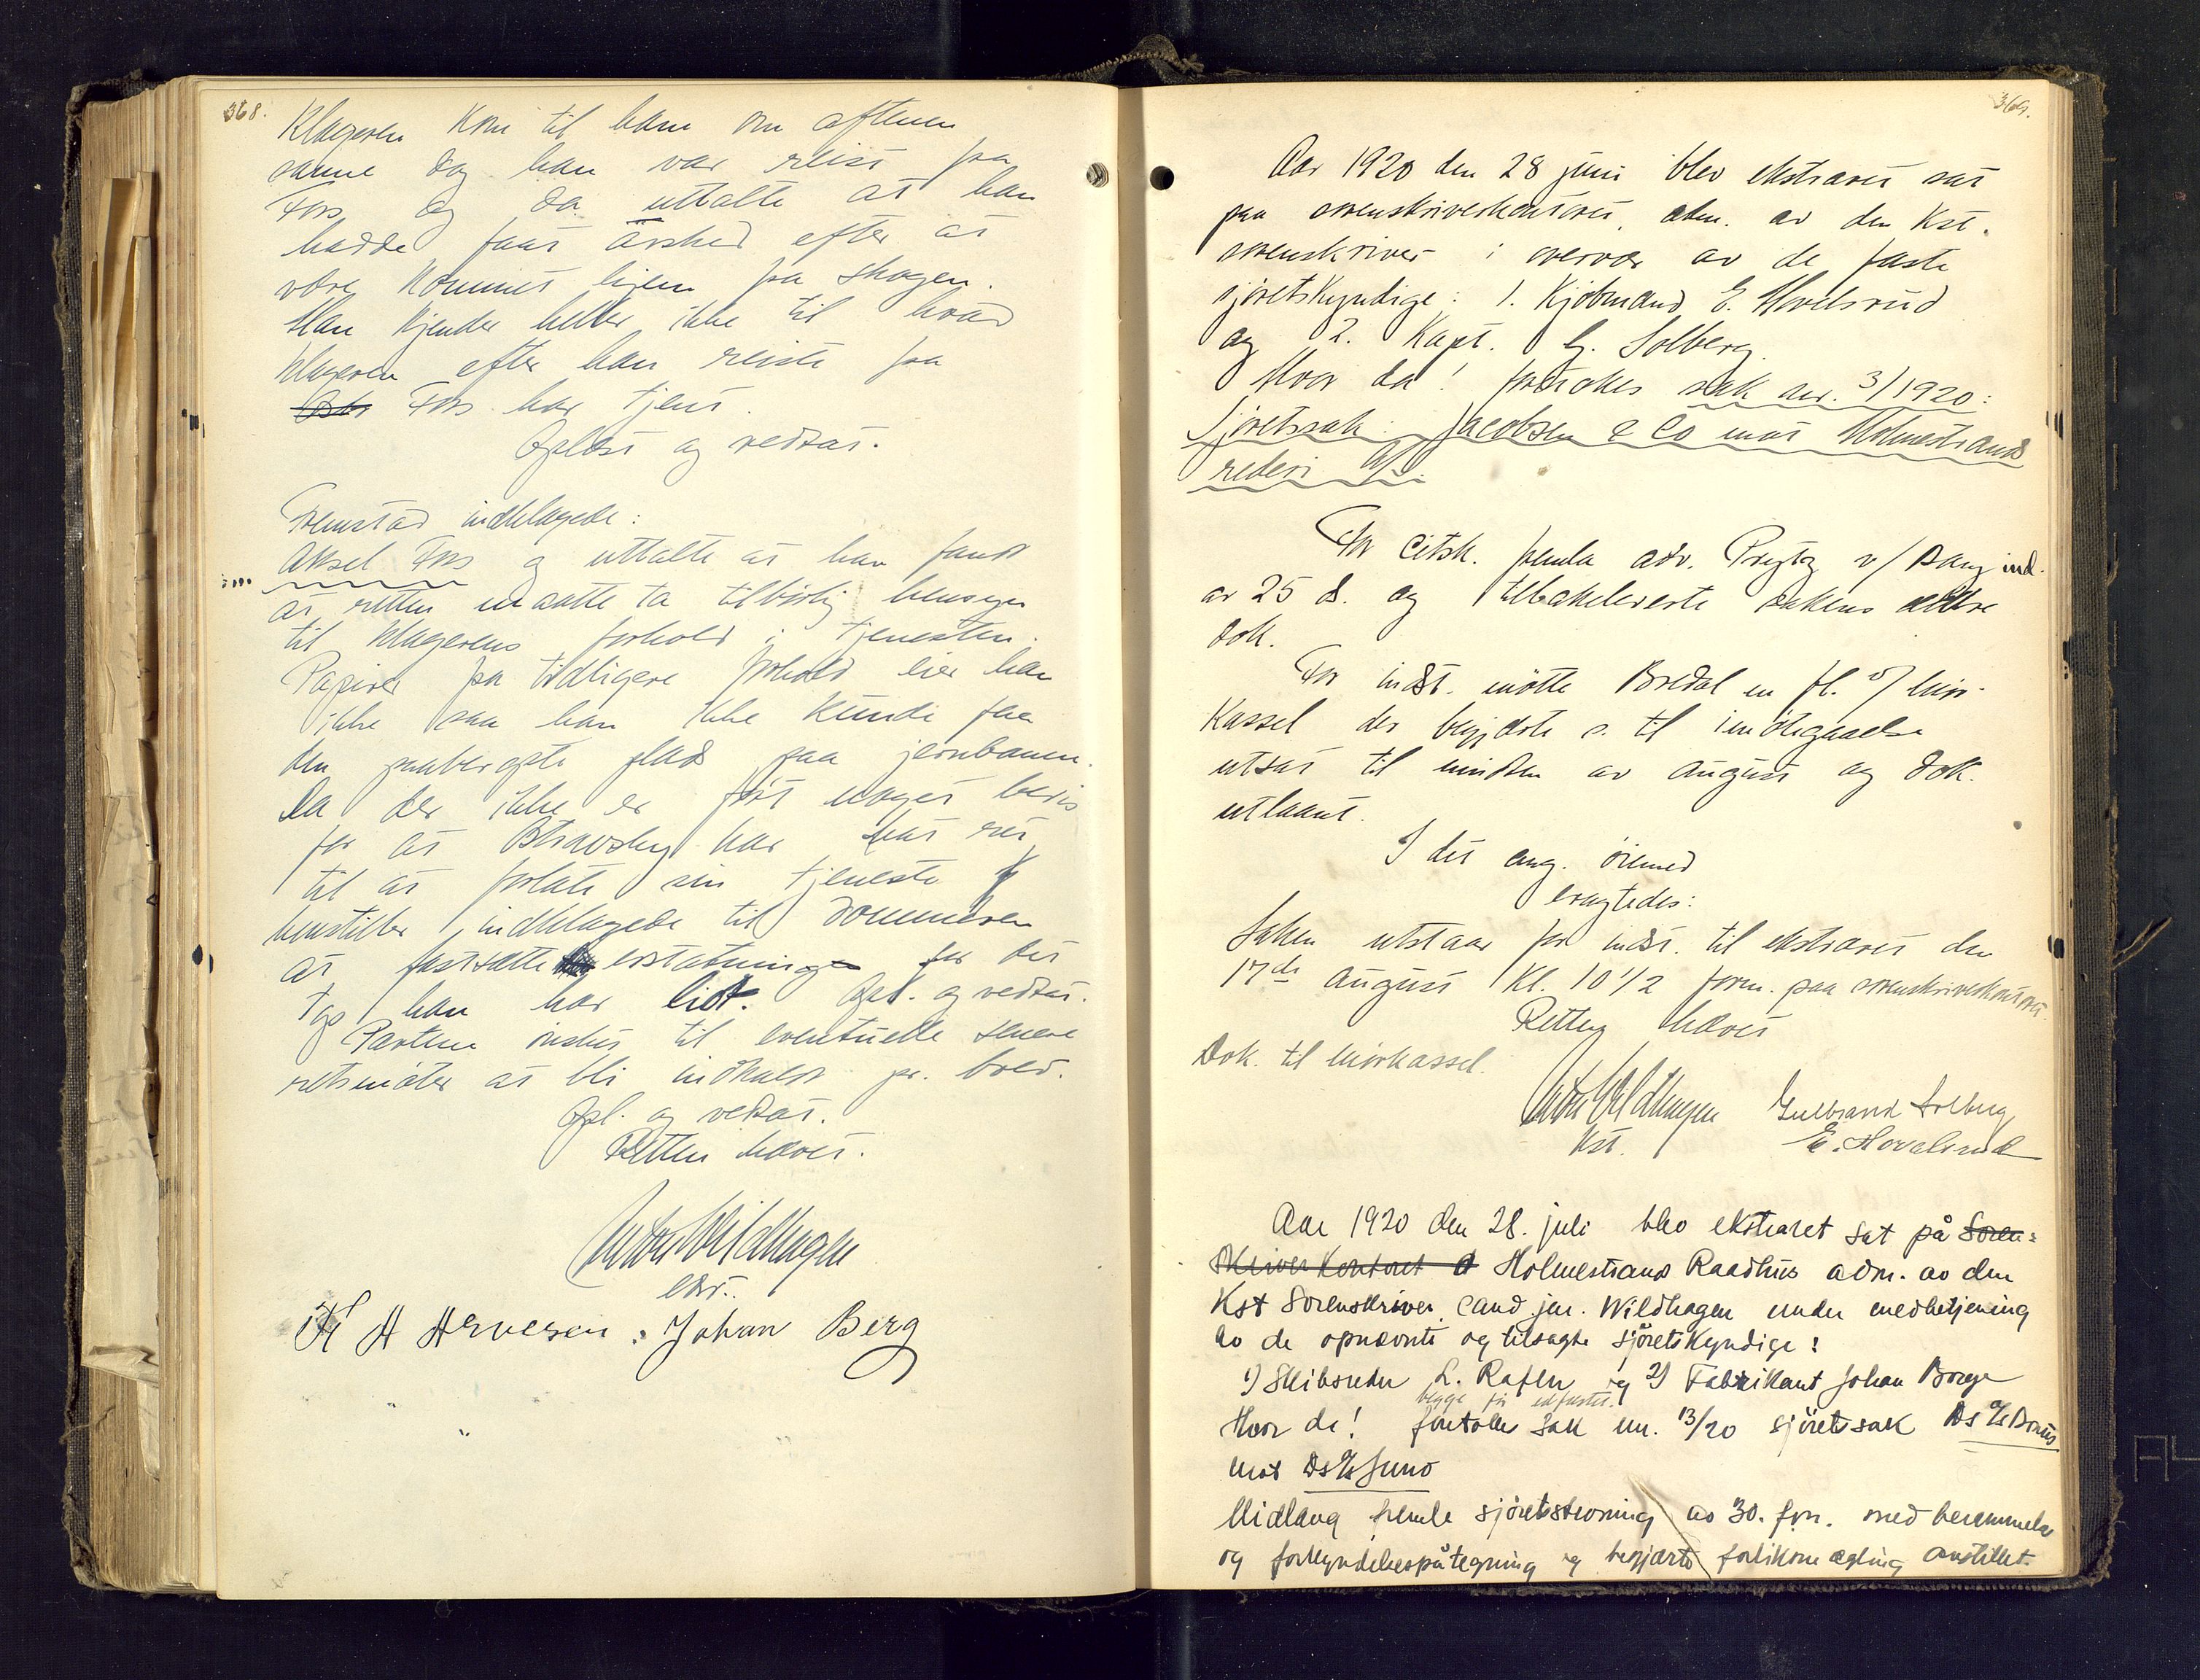 368.
Klageren kom til ham om aftenen
samme dag han var reist fra
Fors og da uttalte at han
hadde faat avsked efter at
være kommet hjem fra skogen.
Han kjender heller ikke til hvad
klageren efter han reiste fra
Fors har tjent.
Oplæst og vedtat.
Fremstod indklagede:
Aksel Fors og uttalte at han fandt
at retten maatte ta tilbørlig hensyn
til klagerens forhold i tjenesten.
Papirer fra tidligere forhold eier han
ikke saa han ikke kunde faa
den paaberopte plads paa jernbanen.
Da der ikke er ført noget bevis
for at har hat ret
til at forlate sin tjeneste
henstiller indklagede til dommeren
at fastsætte erstatning for det
tap han har lidt. Opl. og vedtat.
Parterne ønsket til eventuelle senere
retsmøter at bli indkaldt pr. brev.
Opl. og vedtat.
Retten hævet.
Anton Wildhagen
edsv.
K A Arvesen : Johan Berg
369.
Aar 1920 den 28 juni blev ekstraret sat
paa sorenskriverkontoret, adm. av den kst.
sorenskriver i overvær av de faste
sjøretskyndige: 1. Kjøbmand E. Hovelsrud
og 2. Kapt. G. Solberg.
Hvor da! foretokes sak nr. 3/1920:
Sjøretssak: Jacobsen & Co mot Holmestrands
rederi A/S.
For citsk. fremla adv. Prytz v/ Bang ind.
av 25 d. og tilbakeleverte sakens ældre
dok.
For indst. møtte Bredal en fl. f/ Mör-
kassel der begjærte s. til imøtegaaelse
utsat til midten av august og dok.
utlaant.
I det ang. øiemed
eragtedes:
Saken utstaar for indst. til ekstraret den
17de august kl. 10 1/2 form. paa sorenskriverkontoret.
Retten hævet
Dok. til Mörkassel.
Anton Wildhagen Gulbrand Solberg
kst. E. Hovelsrud
Aar 1920 den 28. juli blev ekstraret sat på Soren=
skriverkontoret Holmestrand Raadhus adm. av den
kst Sorenskriver cand. jur. Wildhagen under medbetjening
av de opnævnte og tilsagte sjöretskyndige:
1) Skibsreder L. Rafen og 2) Fabrikant Johan Borge
begge før edfæstet.
Hvor da! foretokes sak nr. 13/20 sjöretssak Ds A/S
mot Ds A/S Juno
Midlang fremla sjöretsstevning av 30. f.m. med berammelse
og forkyndelsespåtegning og begjærte forliksmægling anstillet.